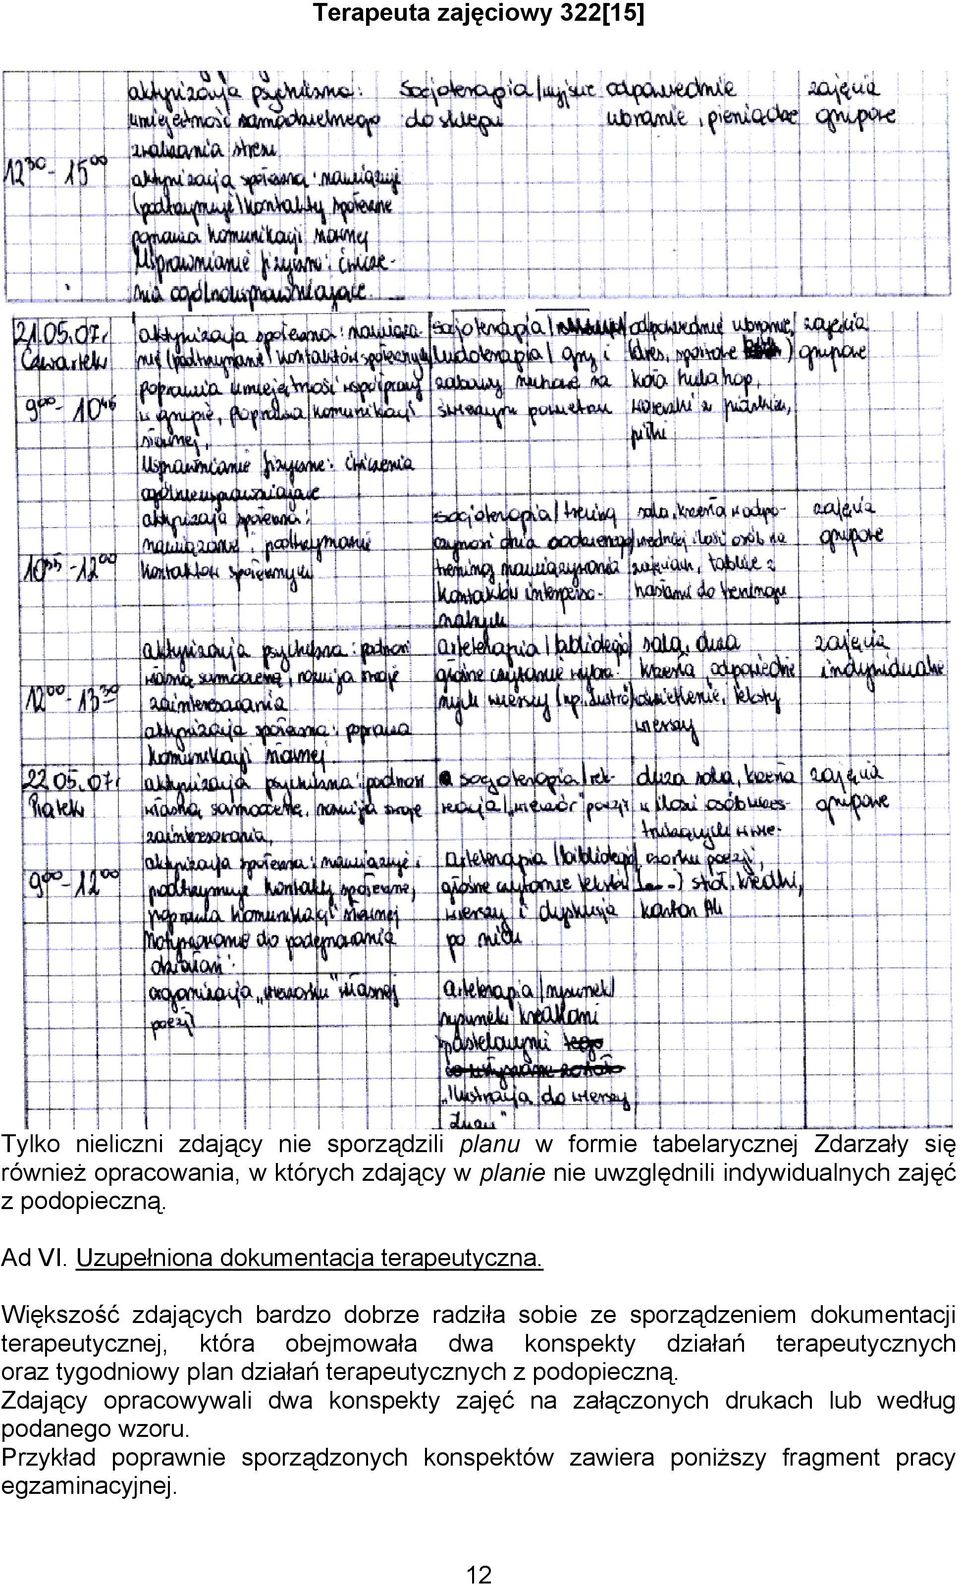 Terapeuta zajęciowy 322[15]
aktywizacja psychiczna: Socjoterapia/wyjście odpowiednie zajęcia
umiejętność samodzielnego do sklepu ubranie, pieniądze grupowe
zwalczania stresu
12³⁰-15⁰⁰ aktywizacja społeczna: nawiązuje
(podtrzymuje) kontakty społeczne
poprawa komunikacji słownej
Usprawnianie fizyczne: ćwicze-
nia ogólnousprawniające
21.05.07r aktywizacja społeczna: nawiąza- socjoterapia/ odpowiednie ubranie zajęcia
Czwartek nie (podtrzymanie) kontaktów społecznych ludoterapia/ gry i (dres, sportowe) grupowe
poprawia umiejętność współpracy zabawy ruchowe na koła hula hop,
9⁰⁰-10⁴⁵ w grupie, poprawa komunikacji świeżym powietrzu woreczki z piaskiem,
słownej, piłki
Usprawnianie fizyczne: ćwiczenia
ogólnousprawniające
aktywizacja społeczna: socjoterapia/trening sala, krzesła w odpo- zajęcia
nawiązanie, podtrzymanie czynności dnia codziennego wiedniej ilości osób na grupowe
10⁵⁵-12⁰⁰ kontaktów społecznych trening nawiązywania zajęciach, tablice z
kontaktów interperso- hasłami do treningu
nalnych
aktywizacja psychiczna: podnosi arteterapia/bibliote sala, duża zajęcia
własną samoocenę, rozwija swoje głośne czytanie wybra- krzesła, odpowiednie indywidualne
12⁰⁰-13³⁰ zainteresowania nych wierszy (np. oświetlenie, teksty
aktywizacja społeczna: poprawa wierszy
komunikacji słownej
22.05.07r aktywizacja psychiczna: podnosi socjoterapia/rek- duża sala, krzesła zajęcia
Piątek własną samoocenę, rozwija swoje reacja/"wieczór" poezji w ilości osób uczes- grupowe
zainteresowania, tniczących w wie-
aktywizacja społeczna: nawiązuje i arteterapia/biblio czorku poezji,
9⁰⁰-12⁰⁰ podtrzymuje kontakty społeczne, głośne czytanie tekstów (...) stół, kredki,
poprawia komunikację słownej wierszy i dyskusja karton A4
motywowanie do podejmowania po nich
działań:
organizacja „wieczorku” własnej arteterapia/rysunek/
poezji rysunek kredkami
pastelowymi
"Ilustracja do wierszy
Tylko nieliczni zdający nie sporządzili planu w formie tabelarycznej Zdarzały się
również opracowania, w których zdający w planie nie uwzględnili indywidualnych zajęć
z podopieczną.
Ad VI. Uzupełniona dokumentacja terapeutyczna.
Większość zdających bardzo dobrze radziła sobie ze sporządzeniem dokumentacji
terapeutycznej, która obejmowała dwa konspekty działań terapeutycznych
oraz tygodniowy plan działań terapeutycznych z podopieczną.
Zdający opracowywali dwa konspekty zajęć na załączonych drukach lub według
podanego wzoru.
Przykład poprawnie sporządzonych konspektów zawiera poniższy fragment pracy
egzaminacyjnej.
12